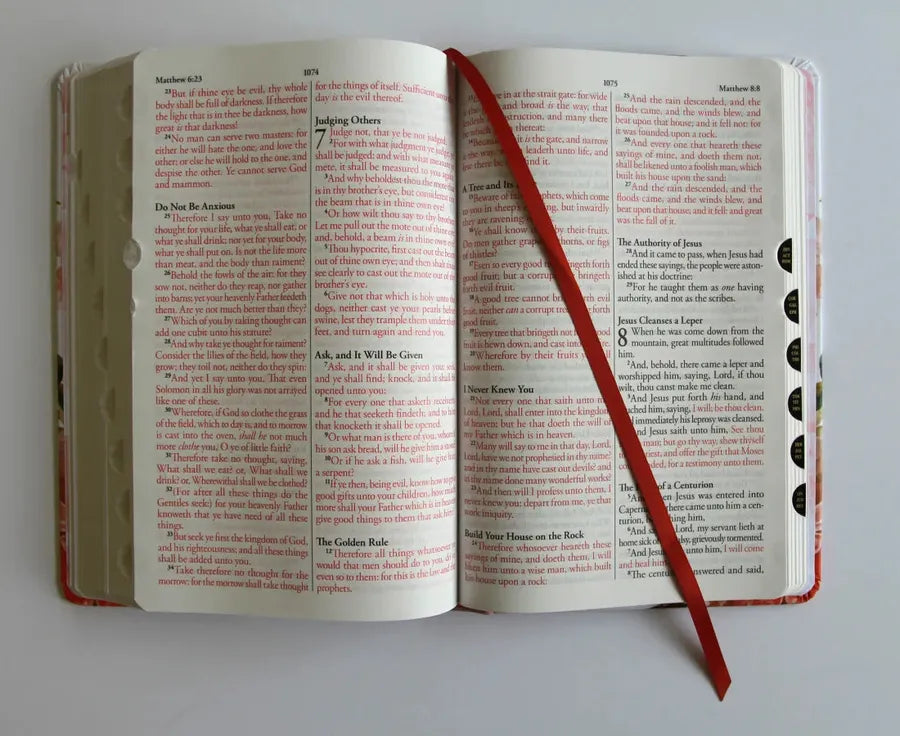 Matthew 6:23
1074
23But if thine eye be evil, thy whole
body shall be full of darkness. If therefore
the light that is in thee be darkness, how
great is that darkness!
24No man can serve two masters: for
either he will hate the one, and love the
other; or else he will hold to the one, and
despise the other. Ye cannot serve God
and mammon.
Do Not Be Anxious
25Therefore I say unto you, Take no
thought for your life, what ye shall eat, or
what ye shall drink; nor yet for your body,
what ye shall put on. Is not the life more
than meat, and the body than raiment?
26Behold the fowls of the air: for they
sow not, neither do they reap, nor gather
into barns; yet your heavenly Father feedeth
them. Are ye not much better than they?
27Which of you by taking thought can
add one cubit unto his stature?
28And why take ye thought for raiment?
Consider the lilies of the field, how they
grow; they toil not, neither do they spin:
29And yet I say unto you, That even
Solomon in all his glory was not arrayed
like one of these.
30Wherefore, if God so clothe the grass
of the field, which to day is, and to morrow
is cast into the oven, shall he not much
more clothe you, O ye of little faith?
31Therefore take no thought, saying,
What shall we eat? or, What shall we
drink? or, Wherewithal shall we be clothed?
32(For after all these things do the
Gentiles seek:) for your heavenly Father
knoweth that ye have need of all these
things.
33But seek ye first the kingdom of God,
and his righteousness; and all these things
shall be added unto you.
34Take therefore no thought for the
morrow: for the morrow shall take thought
for the things of itself. Sufficient unto
day is the evil thereof.
Judging Others
7 Judge not, that ye be not judged.
2For with what judgment ye judge, ye
shall be judged: and with what measure
mete, it shall be measured to you again.
3And why beholdest thou the mote that
is in thy brother's eye, but considerest not
the beam that is in thine own eye?
4Or how wilt thou say to thy brother,
Let me pull out the mote out of thine
and, behold, a beam is in thine own eye?
5Thou hypocrite, first cast out the beam
out of thine own eye; and then shalt thou
see clearly to cast out the mote out of thy
brother's eye.
6Give not that which is holy unto the
dogs, neither cast ye your pearls before
swine, lest they trample them under their
feet, and turn again and rend you.
Ask, and It Will Be Given
7Ask, and it shall be given you; seek,
and ye shall find; knock, and it shall be
opened unto you:
8For every one that asketh receiveth;
and he that seeketh findeth; and to him
that knocketh it shall be opened.
9Or what man is there of you, whom if
his son ask bread, will he give him a stone?
10Or if he ask a fish, will he give him
a serpent?
11If ye then, being evil, know how to give
good gifts unto your children, how much
more shall your Father which is in heaven
give good things to them that ask him?
The Golden Rule
12Therefore all things whatsoever ye
would that men should do to you, do ye
even so to them: for this is the law and the
prophets.
1075
Matthew 8:8
in at the strait gate: for wide
and broad is the way, that
and many there
which thereat:
is the gate, and narrow
is the way, leadeth unto life, and
few there be find it.
A Tree and Its
15Beware of prophets, which come
to you in sheep's but inwardly
they are ravening
16Ye shall know by their fruits.
Do men gather grapes thorns, or figs
of thistles?
17Even so every good bringeth forth
good fruit; but a corrupt bringeth
forth evil fruit.
18A good tree cannot forth evil
fruit, neither can a corrupt tree forth
good fruit.
19Every tree that bringeth not good
fruit is hewn down, and cast into fire.
20Wherefore by their fruits ye
know them.
I Never Knew You
21Not every one that saith unto me,
Lord, Lord, shall enter into the kingdom
of heaven; but he that doeth the will of
my Father which is in heaven.
22Many will say to me in that day, Lord,
Lord, have we not prophesied in thy name?
and in thy name have cast out devils? and
in thy name done many wonderful works?
23And then will I profess unto them, I
never knew you: depart from me, ye that
work iniquity.
Build Your House on the Rock
24Therefore whosoever heareth these
sayings of mine, and doeth them, I will
liken him unto a wise man, which built
his house upon a rock:
25And the rain descended, and the
floods came, and the winds blew, and
beat upon that house; and it fell not: for
it was founded upon a rock.
26And every one that heareth these
sayings of mine, and doeth them not,
shall be likened unto a foolish man, which
built his house upon the sand:
27And the rain descended, and the
floods came, and the winds blew, and
beat upon that house; and it fell: and great
was the fall of it.
The Authority of Jesus
28And it came to pass, when Jesus had
ended these sayings, the people were aston-
ished at his doctrine:
29For he taught them as one having
authority, and not as the scribes.
Jesus Cleanses a Leper
8 When he was come down from the
mountain, great multitudes followed
him.
2And, behold, there came a leper and
worshipped him, saying, Lord, if thou
wilt, thou canst make me clean.
3And Jesus put forth his hand, and
touched him, saying, I will; be thou clean.
immediately his leprosy was cleansed.
And Jesus saith unto him, See thou
man; but go thy way, shew thyself
priest, and offer the gift that Moses
commanded, for a testimony unto them.
The of a Centurion
5And when Jesus was entered into
Capernaum, there came unto him a cen-
turion, beseeching him,
6And Lord, my servant lieth at
home sick of palsy, grievously tormented.
7And Jesus unto him, I will come
and heal him.
8The centurion answered and said,